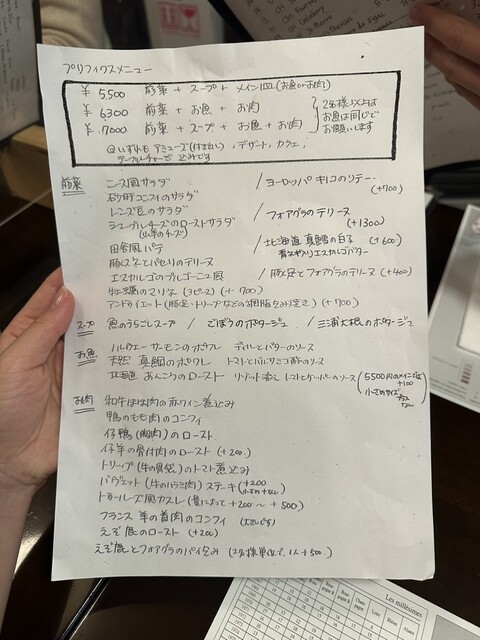 プリフィクスメニュー
¥ 5,500 前菜 + スープ + メイン1皿(お魚orお肉)
¥ 6300 前菜 + お魚 + お肉
¥ 7000 前菜 + スープ + お魚 + お肉
2名様以上は
お魚は同じで
お願いします
@いずれもアミューズ(付き出し), デザート, カフェ,
テーブルチャージ 込みです
前菜
ニース風サラダ / ヨーロッパキノコのソテー (+700)
砂肝コンフィのサラダ
レンズ豆のサラダ / フォアグラのテリーヌ (+1300)
シェーブルチーズのローストサラダ
(山羊のチーズ)
/ 北海道 真鱈の白子 (+600)
青ネギ入りエスカルゴバター
田舎風パテ
豚スネとパセリのテリーヌ / 豚足とフォアグラのテリーヌ (+400)
エスカルゴのブルゴーニュ風
牡蠣のマリネ (3ピース) (+700)
アンドゥイエット (豚足・トリップなどの網脂包み焼き) (+700)
スープ 魚のうらごしスープ / ごぼうのポタージュ / 三浦大根のポタージュ
お魚 ノルウェーサーモンのポワレ ディルとバターのソース
天然 真鯛のポワレ トマトとバルサミコ酢のソース
北海道 あんこうのロースト リゾット添え トマトとケッパーのソース
(5500円のメインは
+100
小さめサイズ
お肉 和牛ほほ肉の赤ワイン煮込み
鴨のもも肉のコンフィ
仔鴨(胸肉)のロースト
仔羊の骨付肉のロースト (+200)
トリップ(牛の胃袋)のトマト煮込み
バヴェット(牛のハラミ肉)ステーキ (+200
トゥールーズ風カスレ (量によって +200~ +500)
フランス 羊の首肉のコンフィ (大きいです)
えぞ鹿のロースト (+200)
えぞ鹿とフォアグラのパイ包み (2名様単位で、1人+500)
Les millésimes